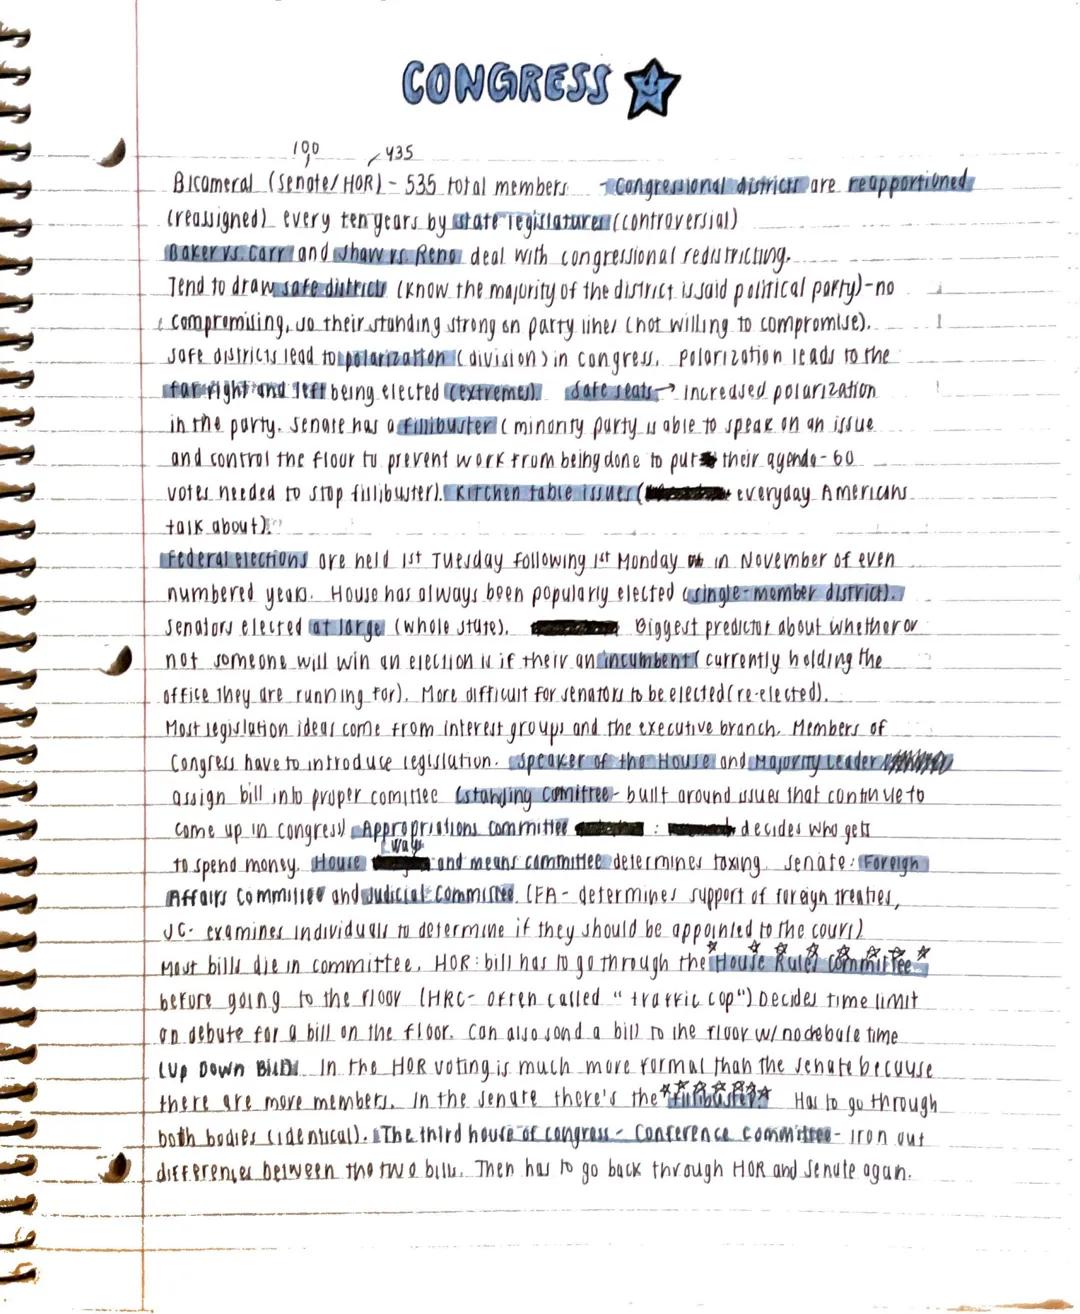 CONGRESS
100 435
Bicameral (Senate/HOR) - 535 total members - Congressional districts are reapportioned
(reassigned) every ten years by state legislatures (controversial)
Baker vs. Carr and Shaw vs. Reno deal with congressional redistricting.
Tend to draw safe districts (know the majority of the district is said political party)-no
compromising, so their standing strong on party lines (not willing to compromise).
safe districts lead to polarization (division) in congress. Polarization leads to the
far right and left being elected (extremes). Safe seats → increased polarization
in the party. Senate has a fillibuster (minority party is able to speak on an issue
and control the flour to prevent work from being done to put their agenda - 60
votes needed to stop fillibuster). Kitchen table issues ( everyday Americans
talk about).
Federal elections are held 1st Tuesday following 1st Monday in November of even
numbered years. House has always been popularly elected (single-member district).
Senators elected at large (whole state). Biggest predictor about whether or
not someone will win an election is if their an incumbent (currently holding the
office they are running for). More difficult for senators to be elected (re-elected).
Most legislation ideas come from interest groups and the executive branch. Members of
Congress have to introduce legislation. Speaker of the House and Majority Leader
assign bill into proper comittee (standing comittee - built around issues that continue to
come up in congress) Appropriations committee : decides who gets
ways
to spend money. House and means committee determines taxing. Senate: Foreign
Affairs Committee and Judicial Committee. (FA - determines support of foreign treaties,
JC- examines individuals to determine if they should be appointed to the court)
Most bills die in committee. HOR: bill has to go through the House Rules Committee
before going to the floor (HRC- often called "traffic cop") Decides time limit
on debate for a bill on the floor. Can also send a bill to the floor w/ no debate time
(Up Down Bill). In the HOR voting is much more formal than the senate because
there are more members. In the senate there's the fillibuster. Has to go through
both bodies (identical). The third house of congress - Conference Committee - iron out
differences between the two bills. Then has to go back through HOR and Senate again.